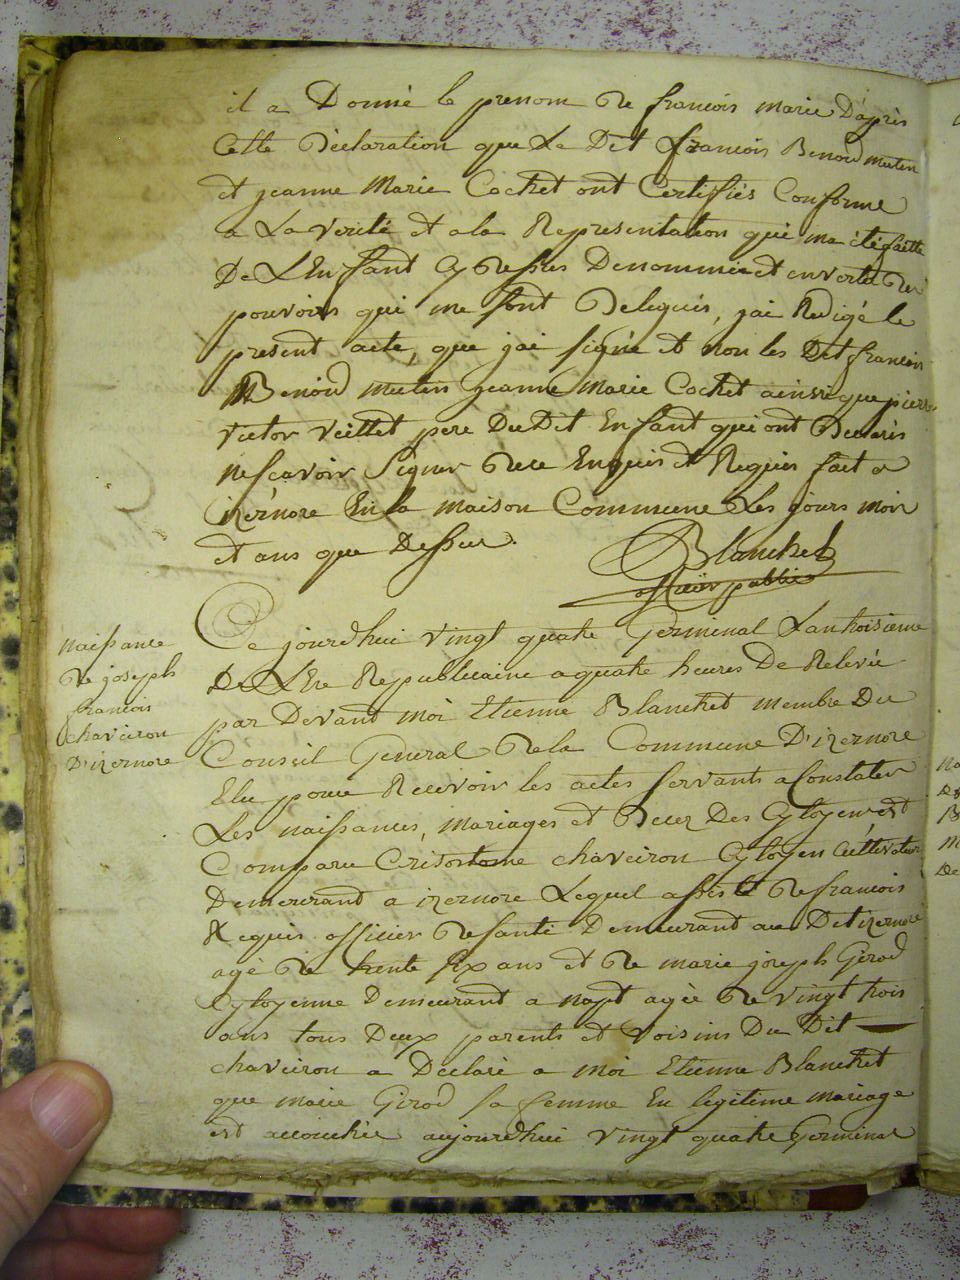 il a Donné le prenom De francois marie D'après
Cette Déclaration que Le Dit francois Benoid mutin
et jeanne Marie Cochet ont Certifiés Conforme
a La verité et a la Representation qui ma été faitte
De L'Enfant Cy Dessus Denommé et en vertu Des
pouvoirs qui me sont Delegués, jai Redigé le
present acte, que jai signé et non les Dit francois
Benoid mutin jeanne marie Cochet ainsi que pierre
victor veillet pere Du Dit Enfant qui ont Declarés
ne scavoir Signer De ce Enquis et Requis fait a
izernore En la maison Commune Les jours mois
et ans que Dessus.
Blanchet
officier public
naissance
De joseph
francois
chaveiron
D'izernore
Ce jourdhui vingt quatre Germinal L'an troisieme
De L'Ere Republicaine a quatre heures De Relevée
par Devant moi Etienne Blanchet membre Du
Conseil General De la Commune D'izernore
Elu pour Recevoir les actes servants a Constater
Les naissances, mariages et Decez Des Cytoyens est
Comparu Crisostome chaveiron Cytoyen Cultivateur
Demeurant a izernore Lequel assisté De francois
officier De santé Demeurant au Dit izernore
agé De trente six ans et De marie joseph Girod
Cytoyenne Demeurant a napt agée De vingt trois
ans tous Deux parents et voisins Du Dit
chaveiron a Déclaré a moi Etienne Blanchet
que marie Girod sa femme En legitime mariage
est accouchée aujourdhui vingt quatre Germinal